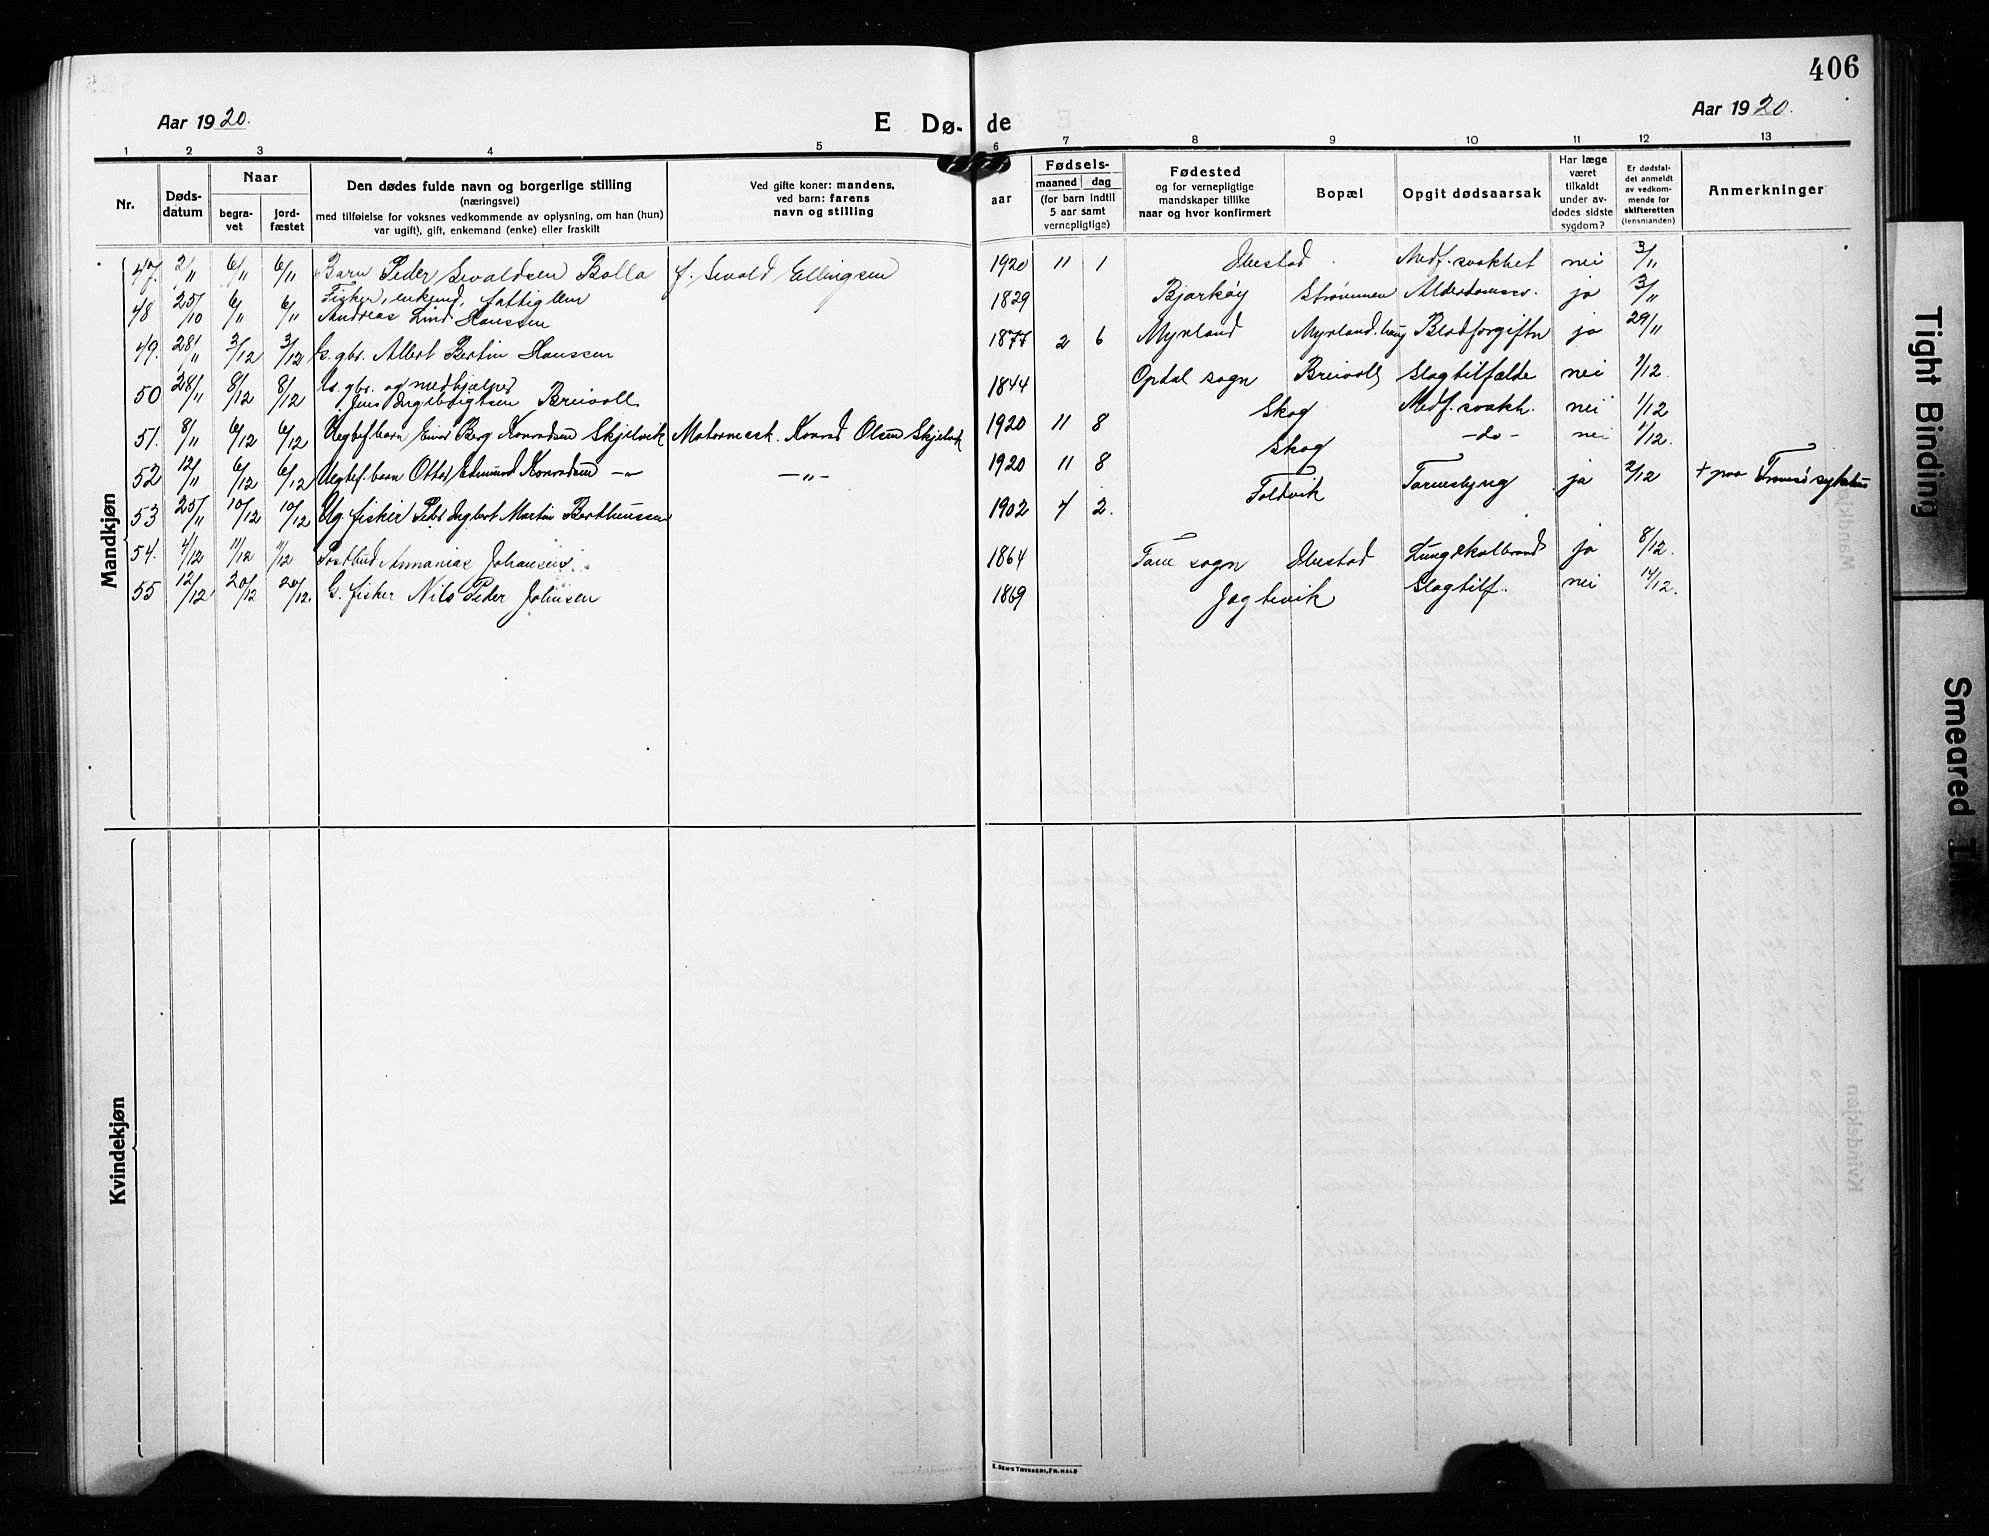 406
Aar 1920.
E Dø- de
Aar 1920.
1 2 3 4 5 6 7 8 9 10 11 12 13
Nr.
Døds-datum
Naar
begra-vet
jord-fæstet
Den dødes fulde navn og borgerlige stilling
(næringsvei)
med tilføielse for voksnes vedkommende av oplysning, om han (hun)
var ugift), gift, enkemand (enke) eller fraskilt
Ved gifte koner: mandens,
ved barn: farens
navn og stilling
aar
Fødsels-
maaned dag
(for barn indtil
5 aar samt
vernepligtige)
Fødested
og for vernepligtige
mandskaper tillike
naar og hvor konfirmert
Bopæl
Opgit dødsaarsak
Har læge
været
tilkaldt
under av-
dødes sidste
sygdom?
Er dødsfal-
det anmeldt
av vedkom-
mende for
skifteretten
(lensmanden)
Anmerkninger
Mandkjøn
47. 2/11 6/11 6/11 Barn Peder Sivaldsen Bolla f. Sivald Ellingsen 1920 11 1 Ibestad Medf. svakhet nei 3/11
48 25/10 6/11 6/11 Fisker, enkemd, fattiglem
Andreas Lind Hanssen 1829 Bjarkøy Strømmen Alderdomssv. ja 3/11
49. 28/11 3/12 3/12 G. gbr. Albert Bertin Hanssen 1877 2 6 Myrland Myrland.haug Blodforgiftn ja 29/11
50 28/11 8/12 8/12 gbr. og medhjælper
Jens Ingebrigtsen Breivoll 1844 Opdal sogn Breivoll Slagtilfælde nei 1/12.
51. 8/11 6/12 6/12 Uegtef. barn Einar Berg Konradsen Skjelvik Motormest. Konrad Olsen Skjelvik 1920 11 8 Skog Medf. svakh. nei 1/12
52 12/11 6/12 6/12 Uegtef. barn Ottar Edmund Konradsen —"— —"— 1920 11 8 Skog —do— nei 1/12.
53 25/11 10/12 10/12 Ug. fisker Peder Ingbert Martin Bertheussen 1902 4 2. Foldvik Tarmslyng ja 2/12 + paa Tromsø sykehus
54. 4/12 11/12 11/12 Postbud Annanias Johansen 1864 Tane sogn Ibestad Lungekoldbrand ja 8/12.
55 12/12 20/12 20/12. G. fisker Nils Peder Johnsen 1869 Jogtevik Slagtilf. nei 14/12.
Kvindekjøn
E. SEM'S TRYKKERI, FR.HALD
Tight Binding
Smeared Ink